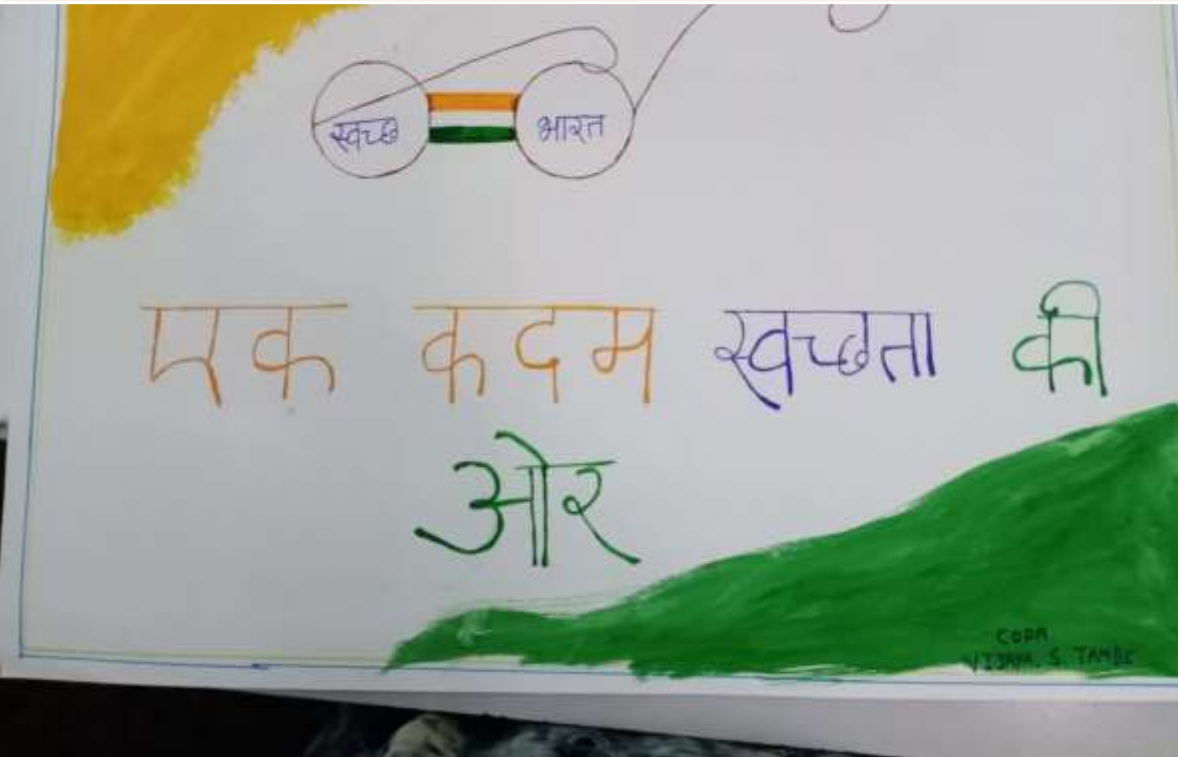 स्वच्छ भारत
एक कदम स्वच्छता की
ओर
COPA
VIJAYA. S. TAMBE